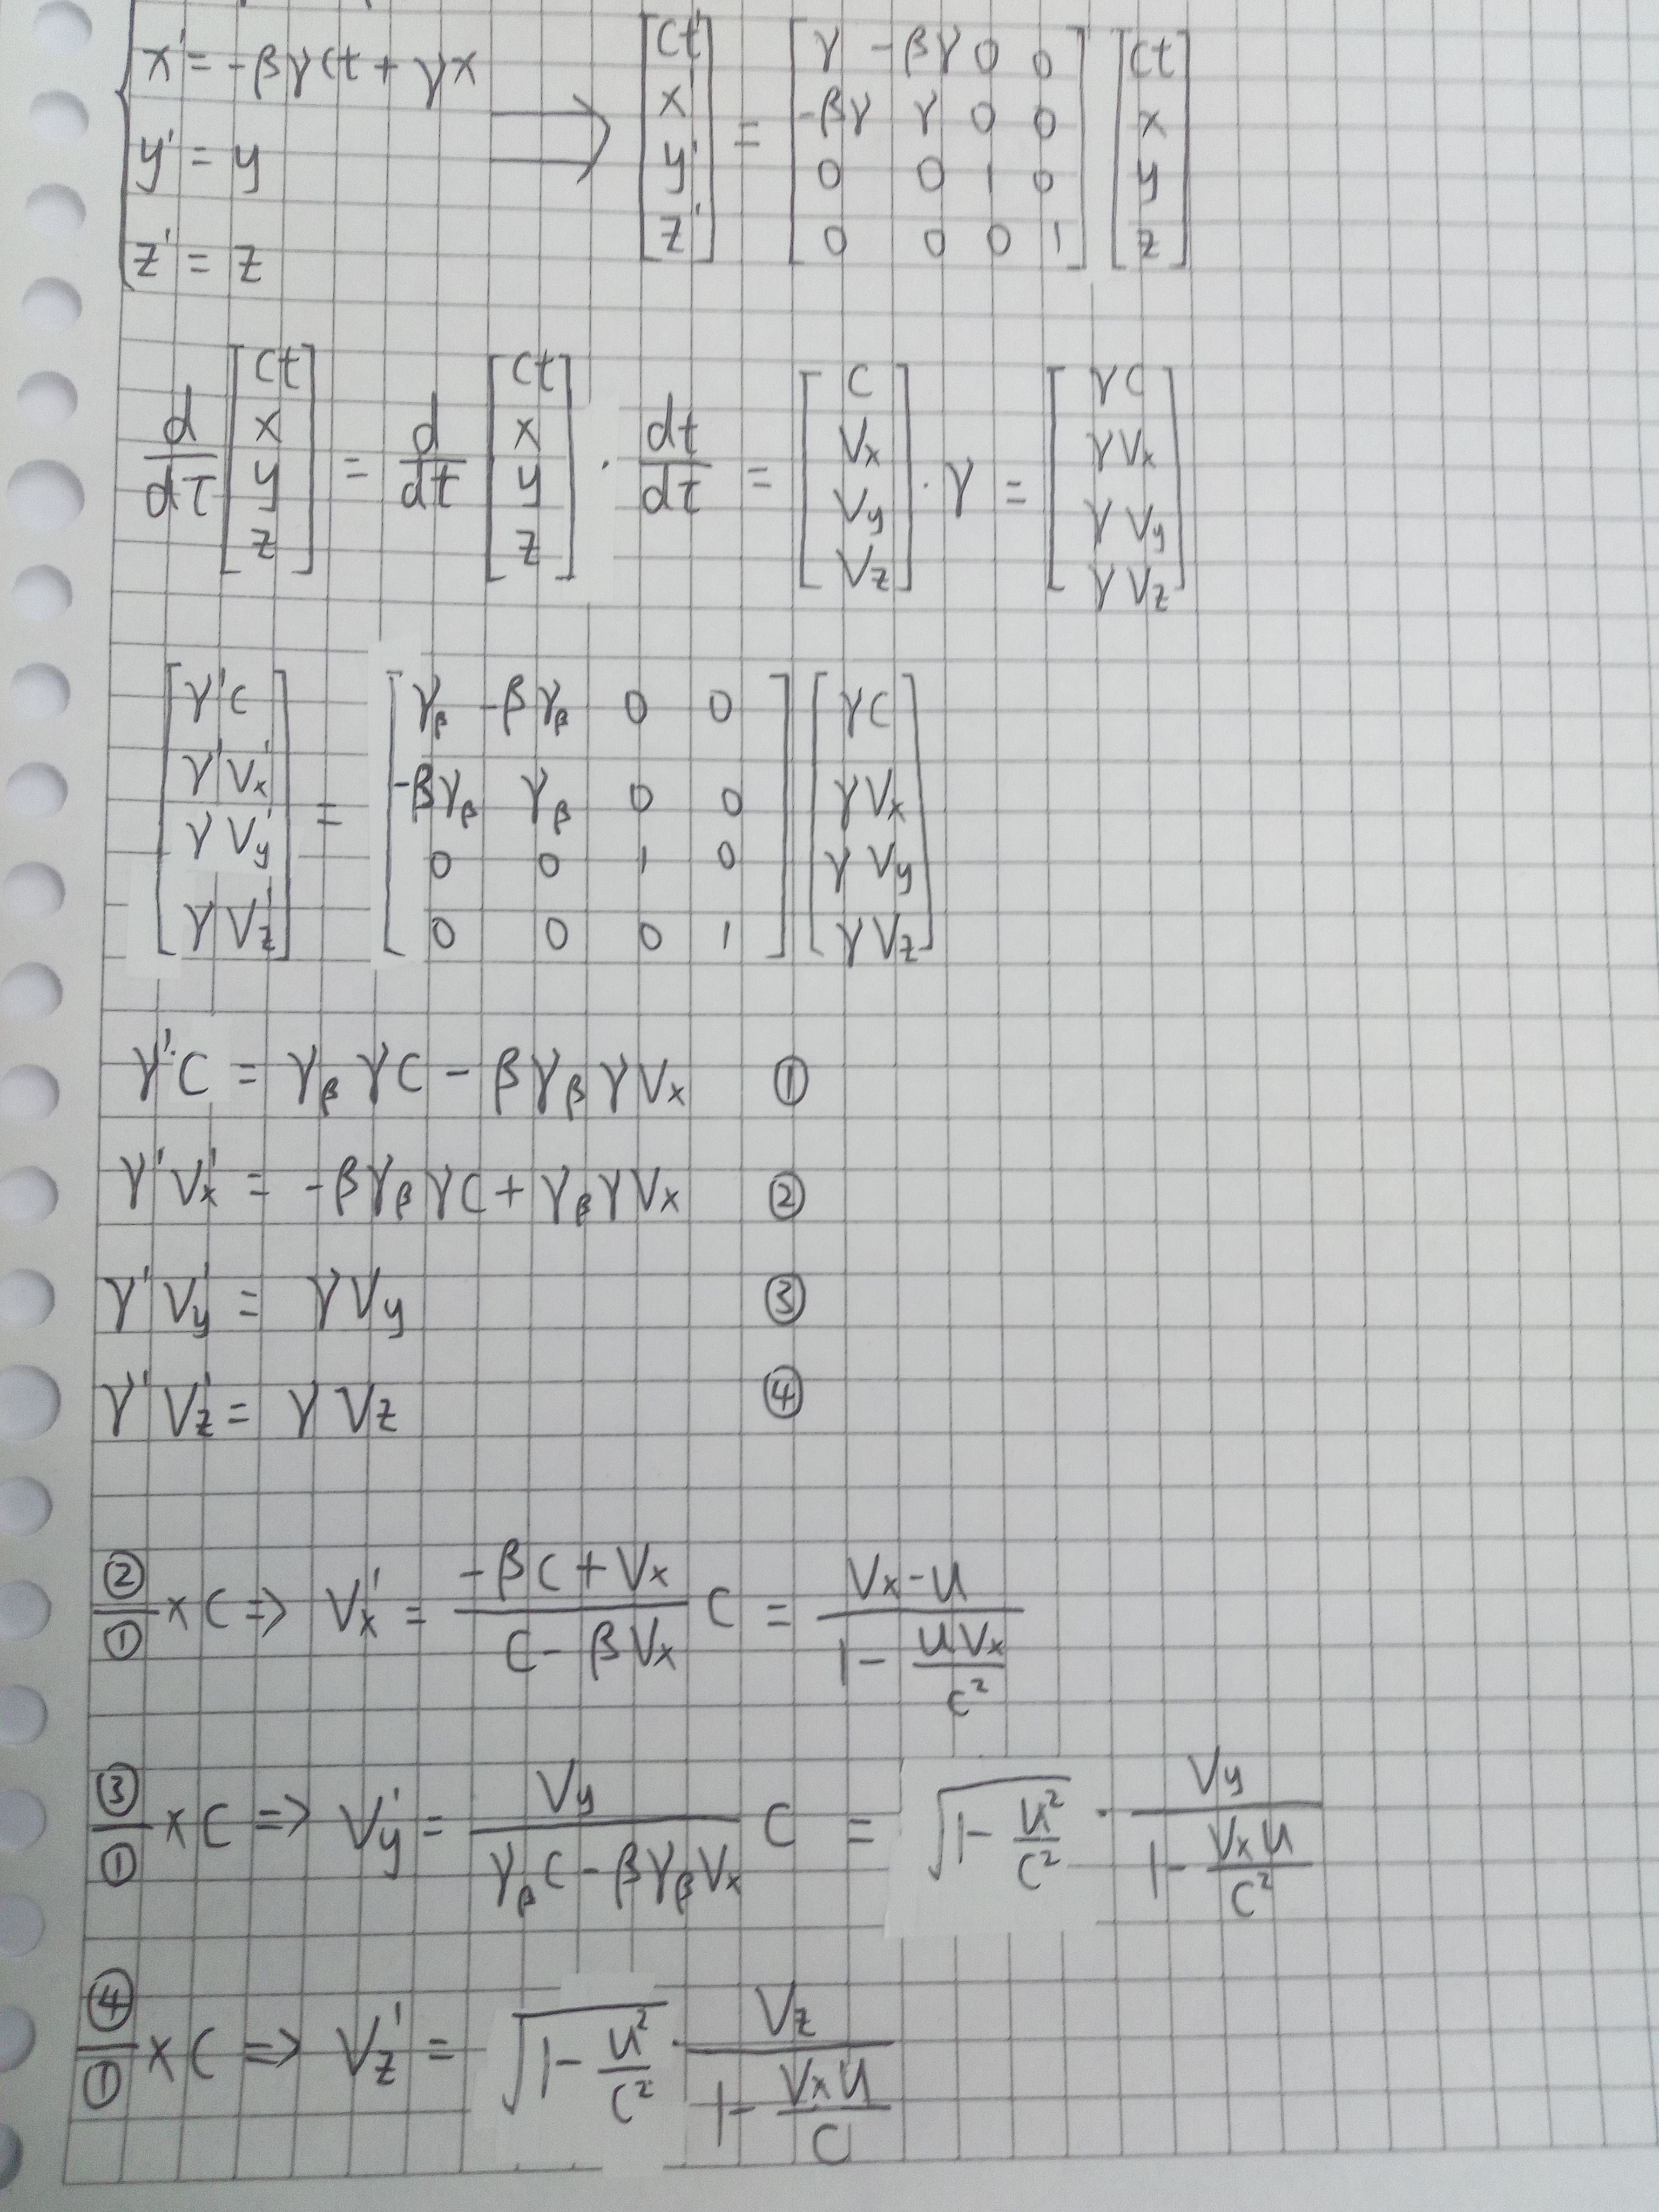 x' = -βγct + γx
y' = y
z' = z
⟹ [ct' x' y' z'] = [γ -βγ 0 0; -βγ γ 0 0; 0 0 1 0; 0 0 0 1] [ct x y z]
d/dτ [ct x y z] = d/dt [ct x y z] · dt/dτ = [c Vx Vy Vz] · γ = [γc γVx γVy γVz]
[γ'c γ'Vx' γVy' γVz'] = [γβ -βγβ 0 0; -βγβ γβ 0 0; 0 0 1 0; 0 0 0 1] [γc γVx γVy γVz]
γ'c = γβ γc - βγβ γVx ①
γ'Vx' = -βγβ γc + γβ γVx ②
γ'Vy' = γVy ③
γ'Vz' = γVz ④
②/① × c ⇒ Vx' = (-βc + Vx)/(c - βVx) c = (Vx - u)/(1 - uVx/c²)
③/① × c ⇒ Vy' = Vy/(γβ c - βγβ Vx) c = √(1 - u²/c²) · Vy/(1 - Vx u/c²)
④/① × c ⇒ Vz' = √(1 - u²/c²) · Vz/(1 - Vx u/c)